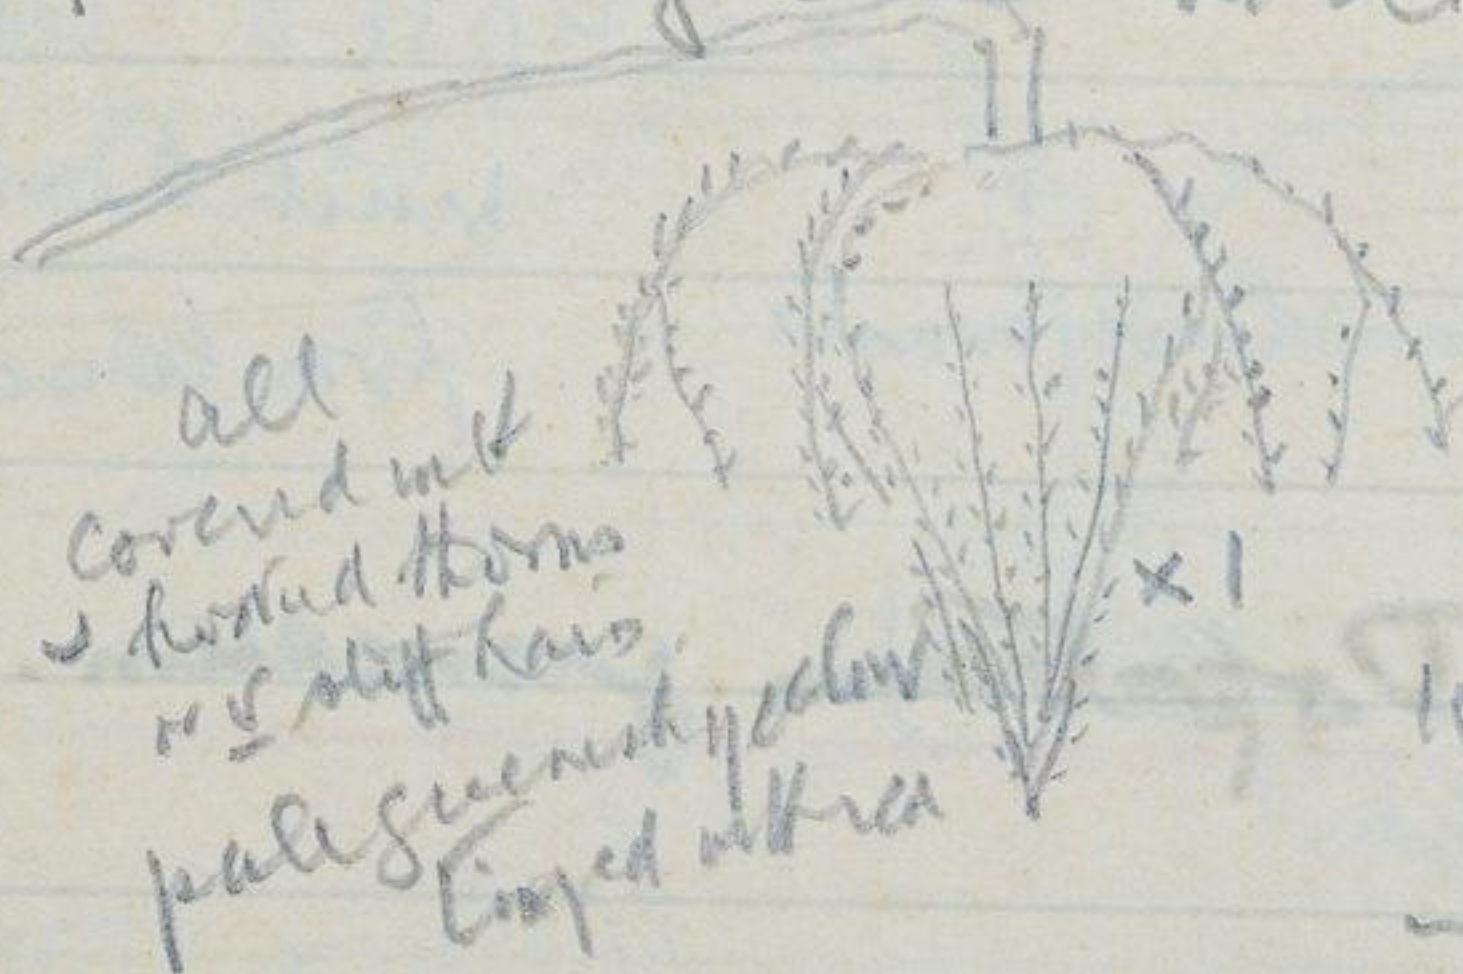 all
covered with
hooked thorns
or v stiff hairs
pale greenish yellow
tinged with red
x 1